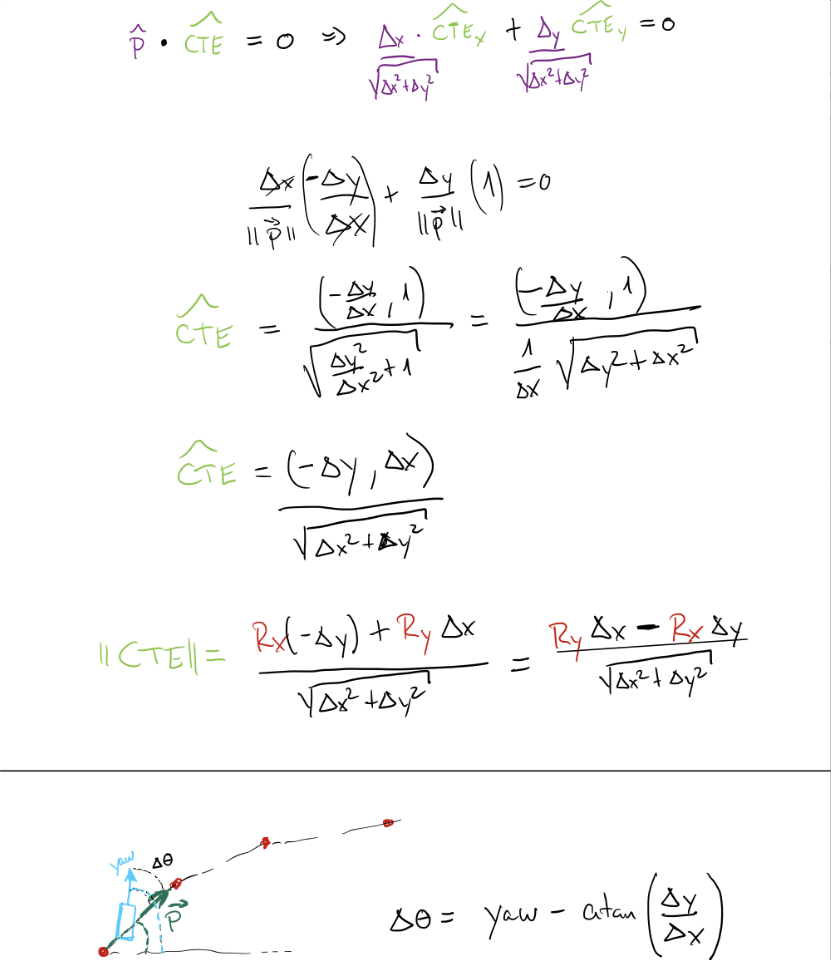 p̂ · CTÊ = 0 ⇒ Δx/√(Δx²+Δy²) · CTÊx + Δy/√(Δx²+Δy²) CTÊy = 0
Δx/||p⃗|| (-Δy/Δx) + Δy/||p⃗|| (1) = 0
CTÊ = (-Δy/Δx, 1)/√(Δy²/Δx² + 1) = (-Δy/Δx, 1)/(1/Δx √(Δy²+Δx²))
CTÊ = (-Δy, Δx)/√(Δx²+Δy²)
||CTE|| = (Rx(-Δy) + Ry Δx)/√(Δx²+Δy²) = (Ry Δx - Rx Δy)/√(Δx²+Δy²)
yaw Δθ
p⃗
Δθ = yaw - atan(Δy/Δx)